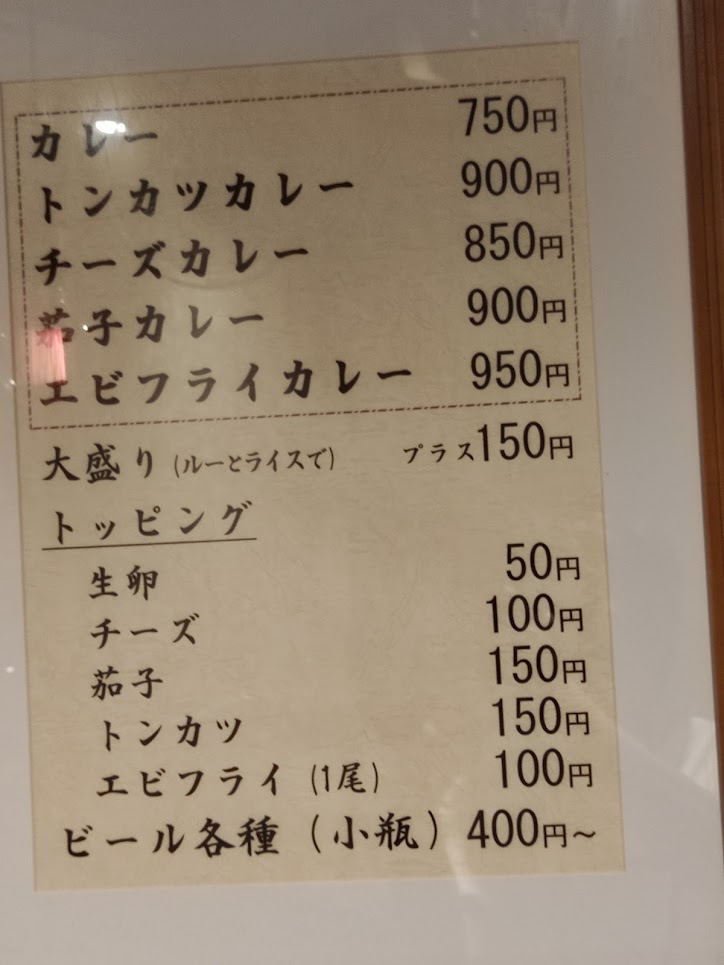 カレー 750円
トンカツカレー 900円
チーズカレー 850円
茄子カレー 900円
エビフライカレー 950円
大盛り(ルーとライスで) プラス150円
トッピング
生卵 50円
チーズ 100円
茄子 150円
トンカツ 150円
エビフライ(1尾) 100円
ビール各種(小瓶) 400円~